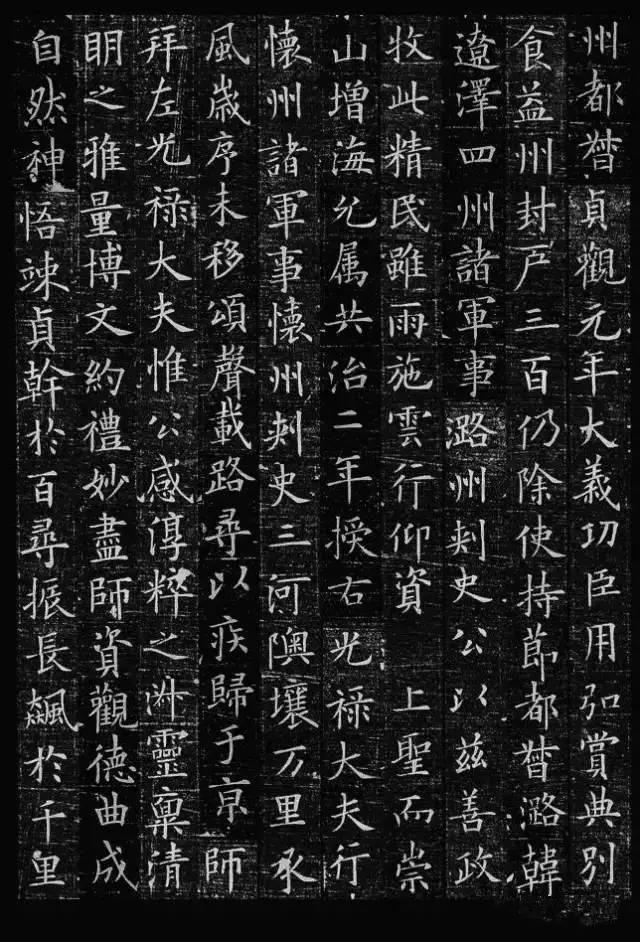 州都督貞觀元年大義功臣用弘賞典別
食益州封戶三百仍除使持節都督潞韓
遼澤四州諸軍事潞州刺史公以茲善政
牧此精民雖雨施雲行仰資 上聖而崇
山增海允属共治二年授右光祿大夫行
懷州諸軍事懷州刺史三河隩壤万里承
風歲序未移頌聲載路尋以疾歸于亰師
拜左光祿大夫惟公感淳粹之沖靈稟清
眀之雅量博文約禮妙盡師資觀德曲成
自然神悟竦貞幹於百尋振長飆於千里